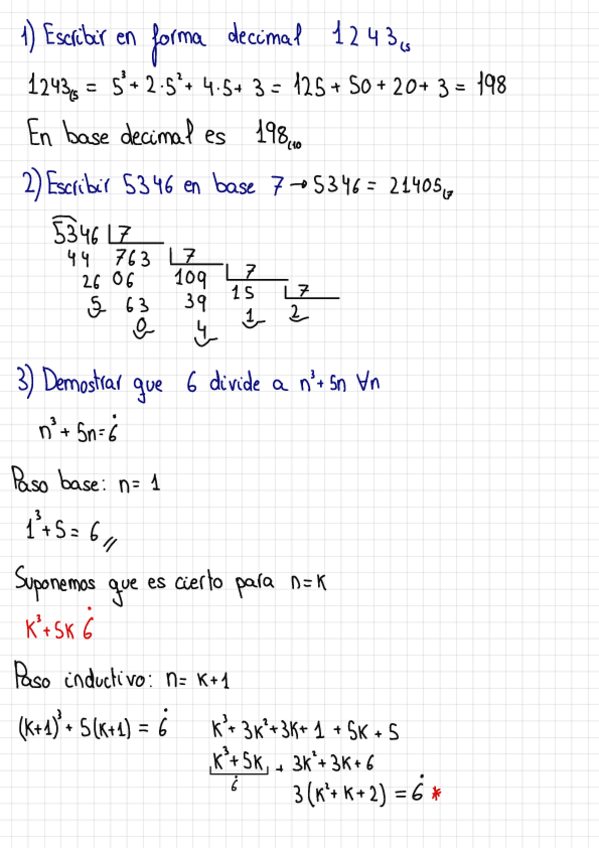 1) Escribir en forma decimal 1243₍₅
1243₍₅ = 5³ + 2·5² + 4·5 + 3 = 125 + 50 + 20 + 3 = 198
En base decimal es 198₍₁₀
2) Escribir 5346 en base 7 → 5346 = 21405₍₇
5346 |7
44 763 |7
26 06 109 |7
5 63 39 15 |7
0 4 1 2
3) Demostrar que 6 divide a n³ + 5n ∀n
n³ + 5n = 6̇
Paso base: n = 1
1³ + 5 = 6 //
Suponemos que es cierto para n = K
K³ + 5K 6̇
Paso inductivo: n = K+1
(K+1)³ + 5(K+1) = 6̇ K³ + 3K² + 3K + 1 + 5K + 5
K³ + 5K + 3K² + 3K + 6
6̇
3(K² + K + 2) = 6̇ *